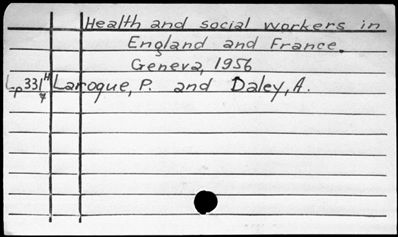 Health and social workers in
England and France.
Geneva, 1956
Lp331H7 Laroque, P. and Daley, A.